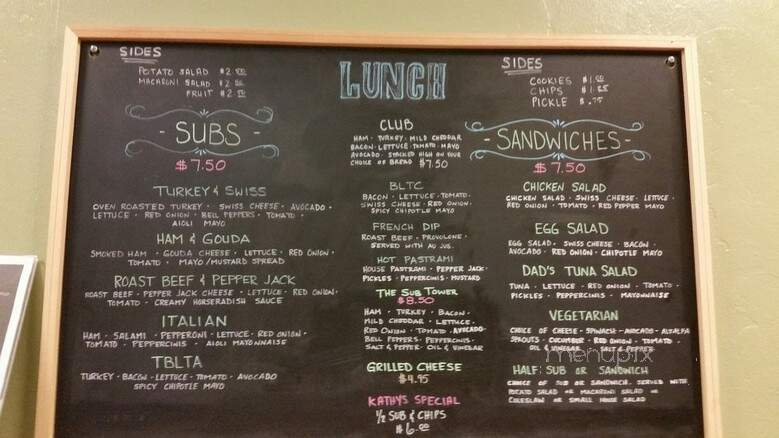 SIDES
POTATO SALAD $2.00
MACARONI SALAD $2.00
FRUIT $2.00
SUBS
$7.50
TURKEY & SWISS
OVEN ROASTED TURKEY · SWISS CHEESE · AVOCADO ·
LETTUCE · RED ONION · BELL PEPPERS · TOMATO ·
AIOLI MAYO
HAM & GOUDA
SMOKED HAM · GOUDA CHEESE · LETTUCE · RED ONION ·
TOMATO · MAYO/MUSTARD SPREAD
ROAST BEEF & PEPPER JACK
ROAST BEEF · PEPPER JACK CHEESE · LETTUCE · RED ONION ·
TOMATO · CREAMY HORSERADISH SAUCE
ITALIAN
HAM · SALAMI · PEPPERONI · LETTUCE · RED ONION ·
TOMATO · PEPPERCINIS · AIOLI MAYONNAISE
TBLTA
TURKEY · BACON · LETTUCE · TOMATO · AVOCADO
SPICY CHIPOTLE MAYO
LUNCH
CLUB
HAM · TURKEY · MILD CHEDDAR
BACON · LETTUCE · TOMATO · MAYO
AVOCADO · STACKED HIGH ON YOUR
CHOICE OF BREAD $7.50
BLTC
BACON · LETTUCE · TOMATO ·
SWISS CHEESE · RED ONION ·
SPICY CHIPOTLE MAYO
FRENCH DIP
ROAST BEEF · PROVOLONE ·
SERVED WITH AU JUS.
HOT PASTRAMI
HOUSE PASTRAMI · PEPPER JACK ·
PICKLES · PEPPERCINIS · MUSTARD
THE SUB TOWER
$8.50
HAM · TURKEY · BACON ·
MILD CHEDDAR · LETTUCE ·
RED ONION · TOMATO · AVOCADO ·
BELL PEPPERS · PEPPERCINIS ·
SALT & PEPPER · OIL & VINEGAR
GRILLED CHEESE
$4.95
KATHYS SPECIAL
1/2 SUB & CHIPS
$6.00
SIDES
COOKIES
CHIPS
PICKLE $.75
SANDWICHES
$7.50
CHICKEN SALAD
CHICKEN SALAD · SWISS CHEESE · LETTUCE ·
RED ONION · TOMATO · RED PEPPER MAYO
EGG SALAD
EGG SALAD · SWISS CHEESE · BACON ·
AVOCADO · RED ONION · CHIPOTLE MAYO
DAD'S TUNA SALAD
TUNA · LETTUCE · RED ONION · TOMATO ·
PICKLES · PEPPERCINIS · MAYONNAISE
VEGETARIAN
CHOICE OF CHEESE · SPINACH · AVOCADO · ALFALFA
SPROUTS · CUCUMBER · RED ONION · TOMATO ·
OIL & VINEGAR · SALT & PEPPER
menupix
HALF: SUB OR SANDWICH
CHOICE OF SUB OR SANDWICH. SERVED WITH
POTATO SALAD OR MACARONI SALAD OR
COLESLAW OR SMALL HOUSE SALAD